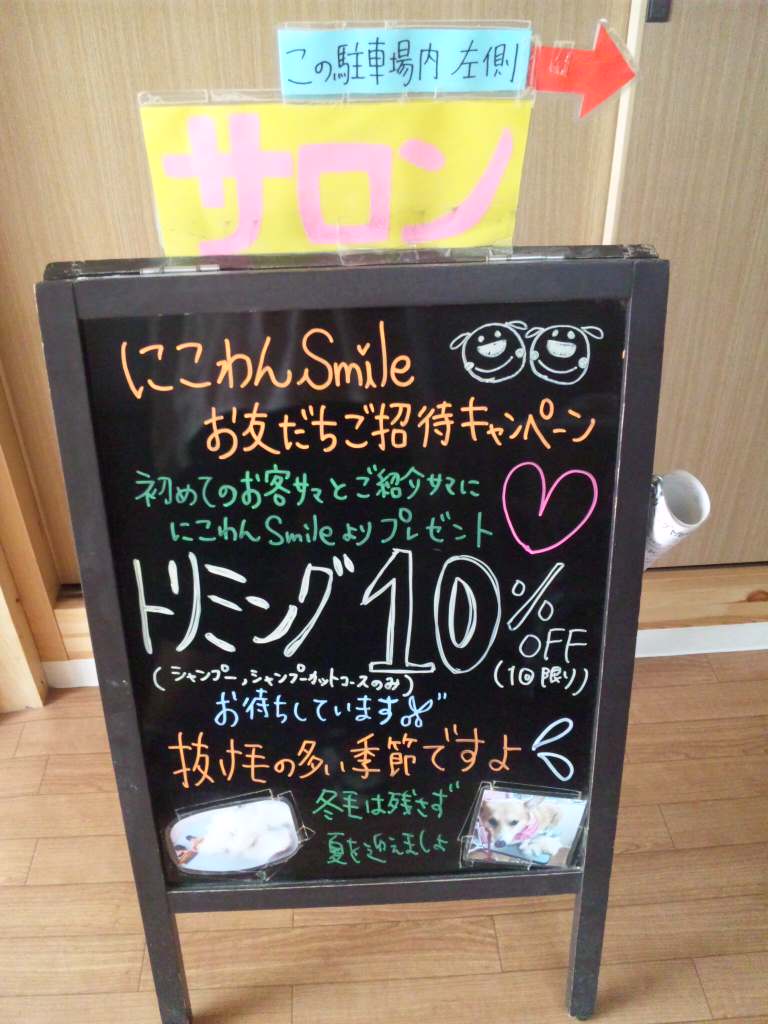 この駐車場内 左側
サロン
にこわんSmile
お友だちご招待キャンペーン
初めてのお客サマとご紹介サマに
にこわんSmileよりプレゼント
トリミング10%OFF
(シャンプー,シャンプーカットコースのみ)
(1回限り)
お待ちしています
抜け毛の多い季節ですよ
冬毛は残さず
夏を迎えましょ